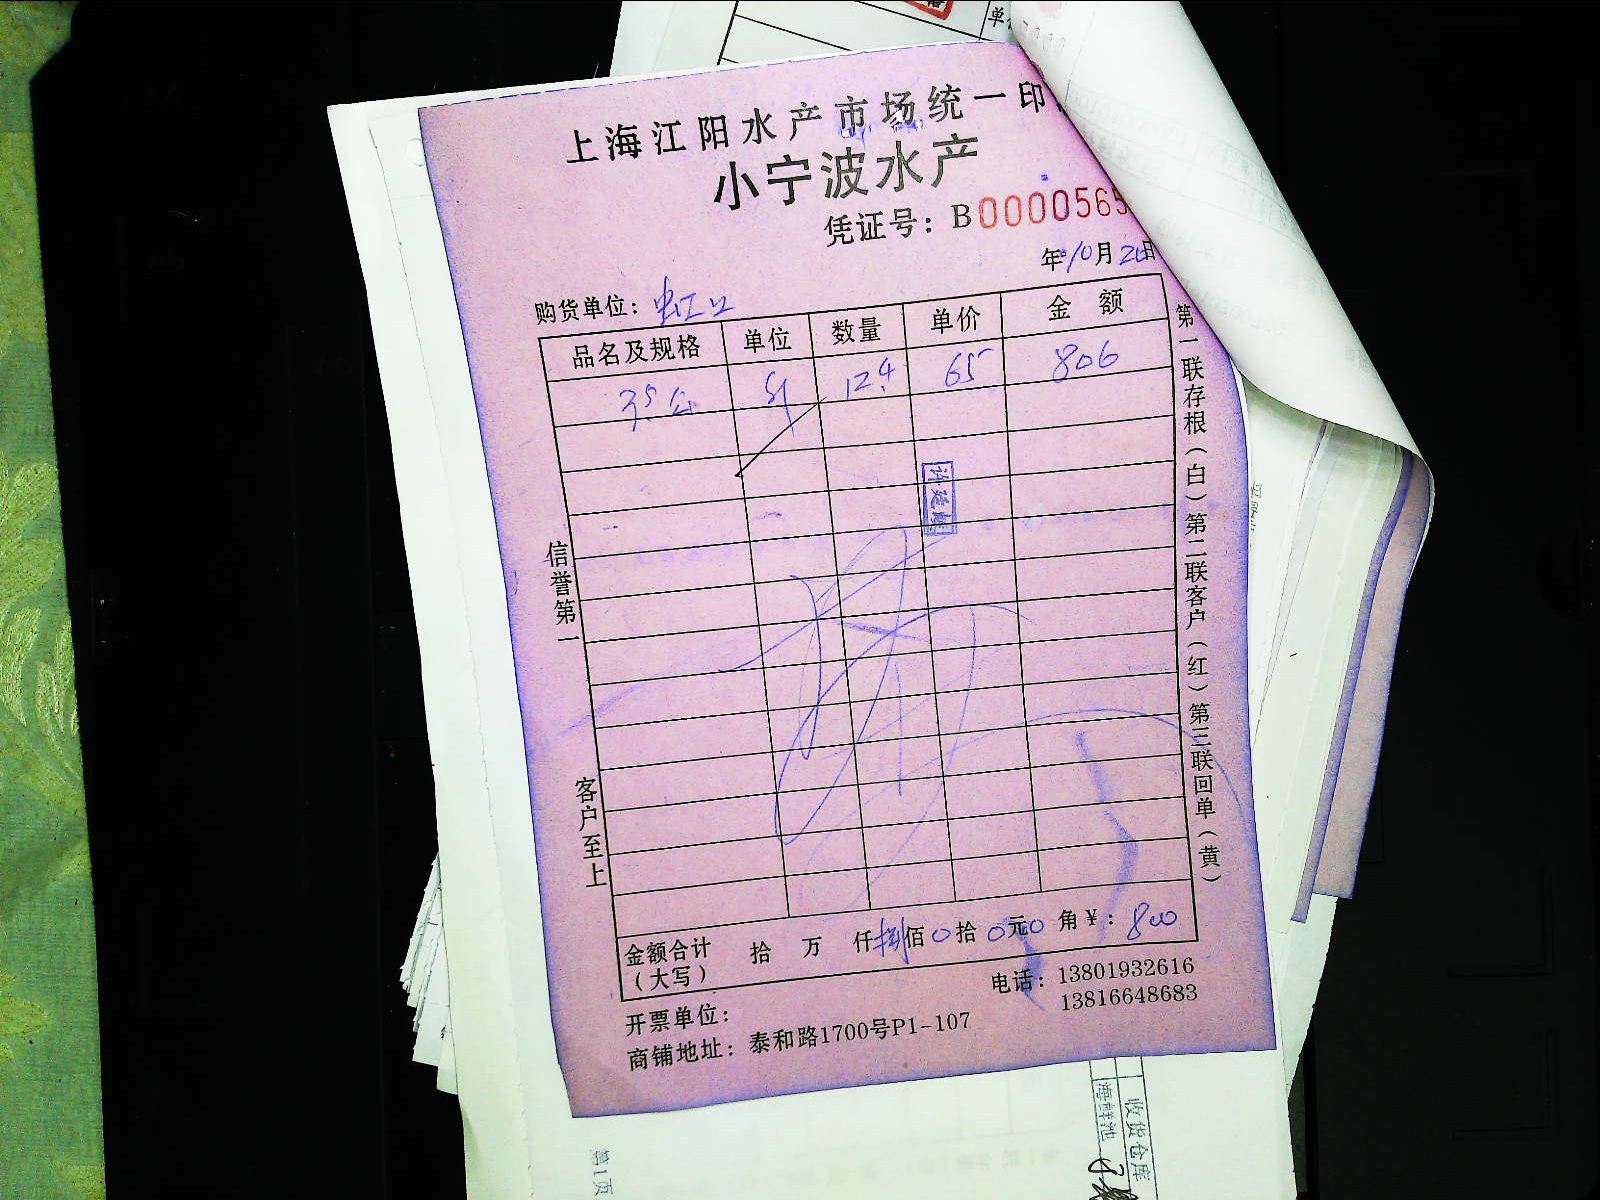 上海江阳水产市场统一印
小宁波水产
凭证号：B0000565
年10月2日
购货单位：虹江
品名及规格 单位 数量 单价 金 额
35公 斤 12.4 65 806
许廷
信誉第一
客户至上
第一联存根（白）第二联客户（红）第三联回单（黄）
金额合计（大写） 拾 万 仟捌佰0拾0元0角￥：800
电话：13801932616
13816648683
开票单位：
商铺地址：泰和路1700号P1-107
收货仓库
海鲜池
第1页